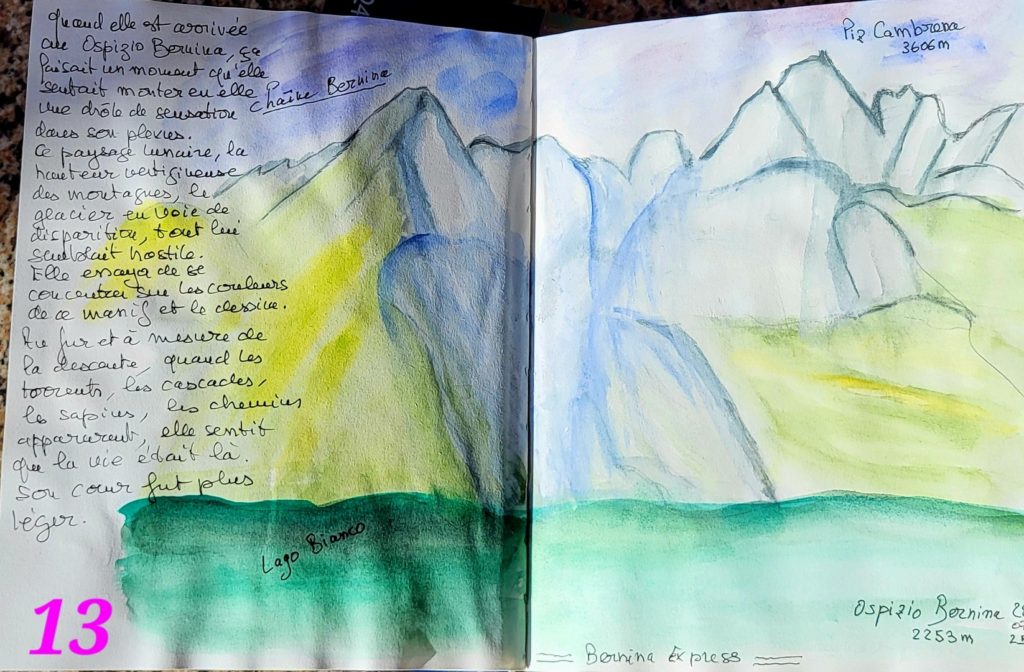 Quand elle est arrivée
au Ospizio Bernina, ça
faisait un moment qu'elle
sentait monter en elle
une drôle de sensation
dans son plexus.
Ce paysage lunaire, la
hauteur vertigineuse
des montagnes, le
glacier en voie de
disparition, tout lui
semblait hostile.
Elle essaya de se
concentrer sur les couleurs
de ce massif et le dessine.
Au fur et à mesure de
la descente, quand les
torrents, les cascades,
les sapins, les chemins
apparurent, elle sentit
que la vie était là.
Son cœur fut plus
léger.
Chaîne Bernina
Piz Cambrena
3606m
Lago Bianco
Ospizio Bernina
2253m
Bernina Express
13